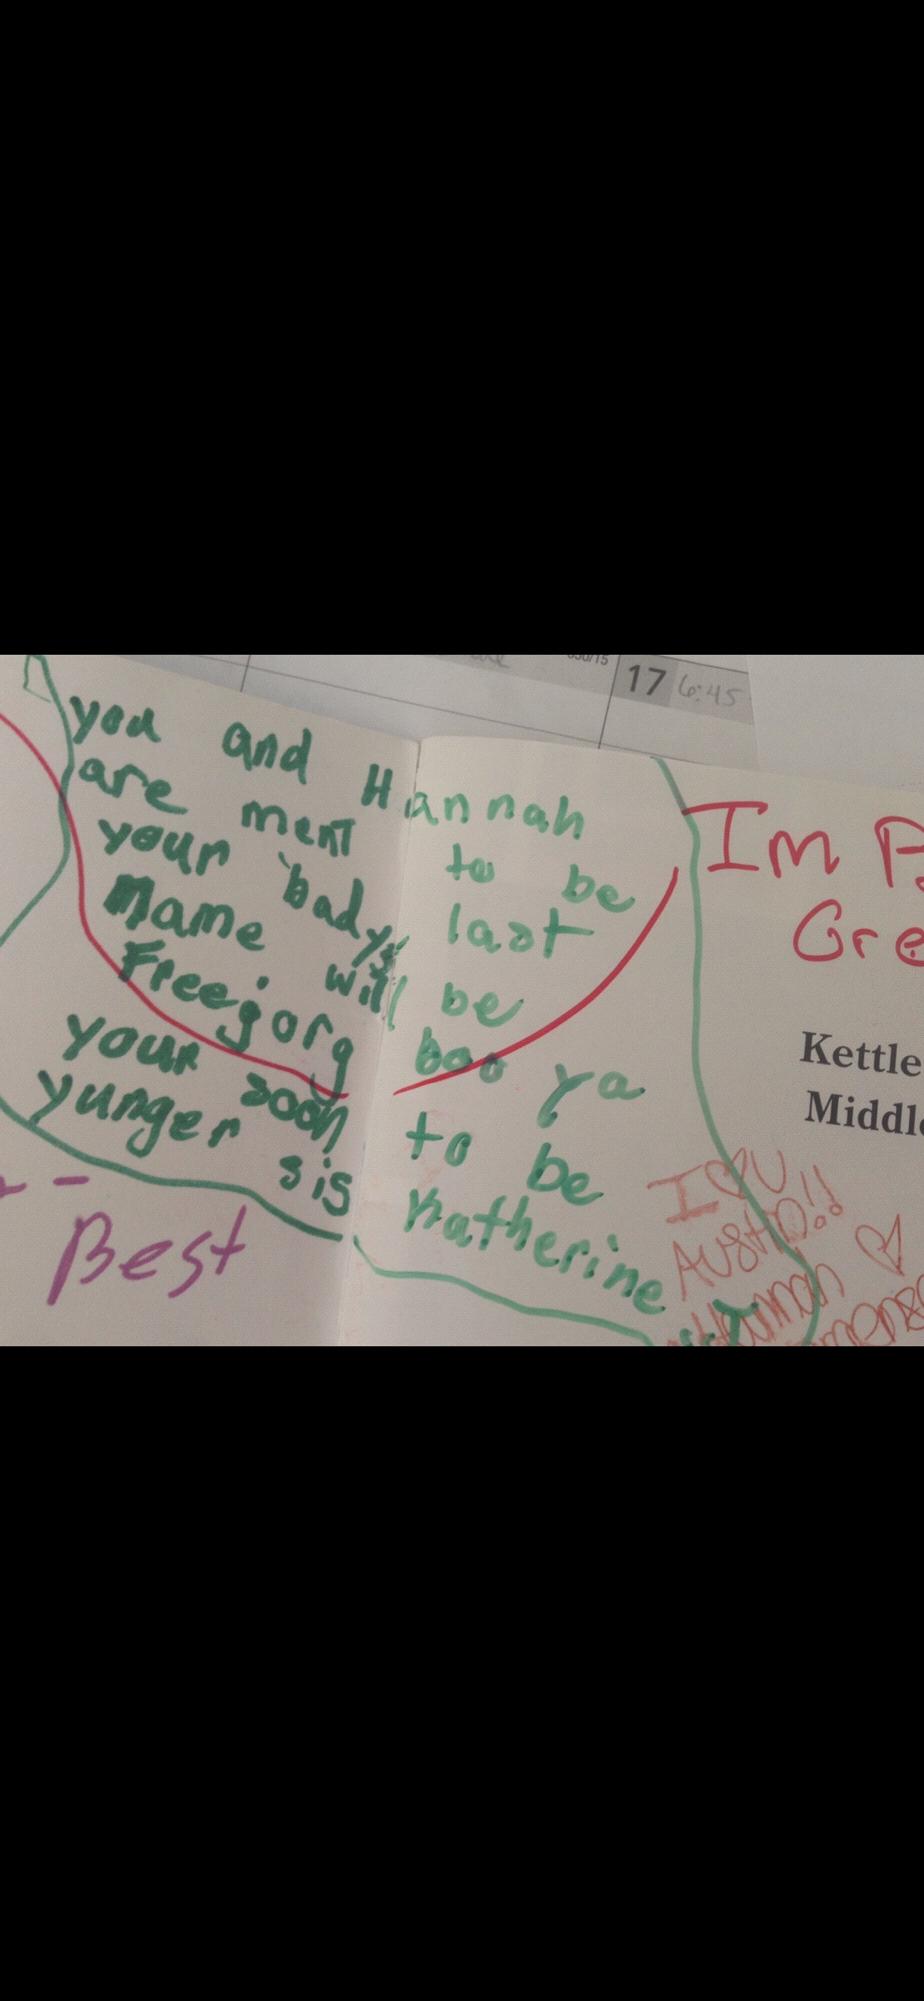 17 6:45
you and Hannah
are ment to be
your bady's last
Name will be
Freejorg boo ya
your soon to be
yunger sis Katherine
Im
Gre
Kettle
Middle
I U
AUSTIN!!
Hannah
Best